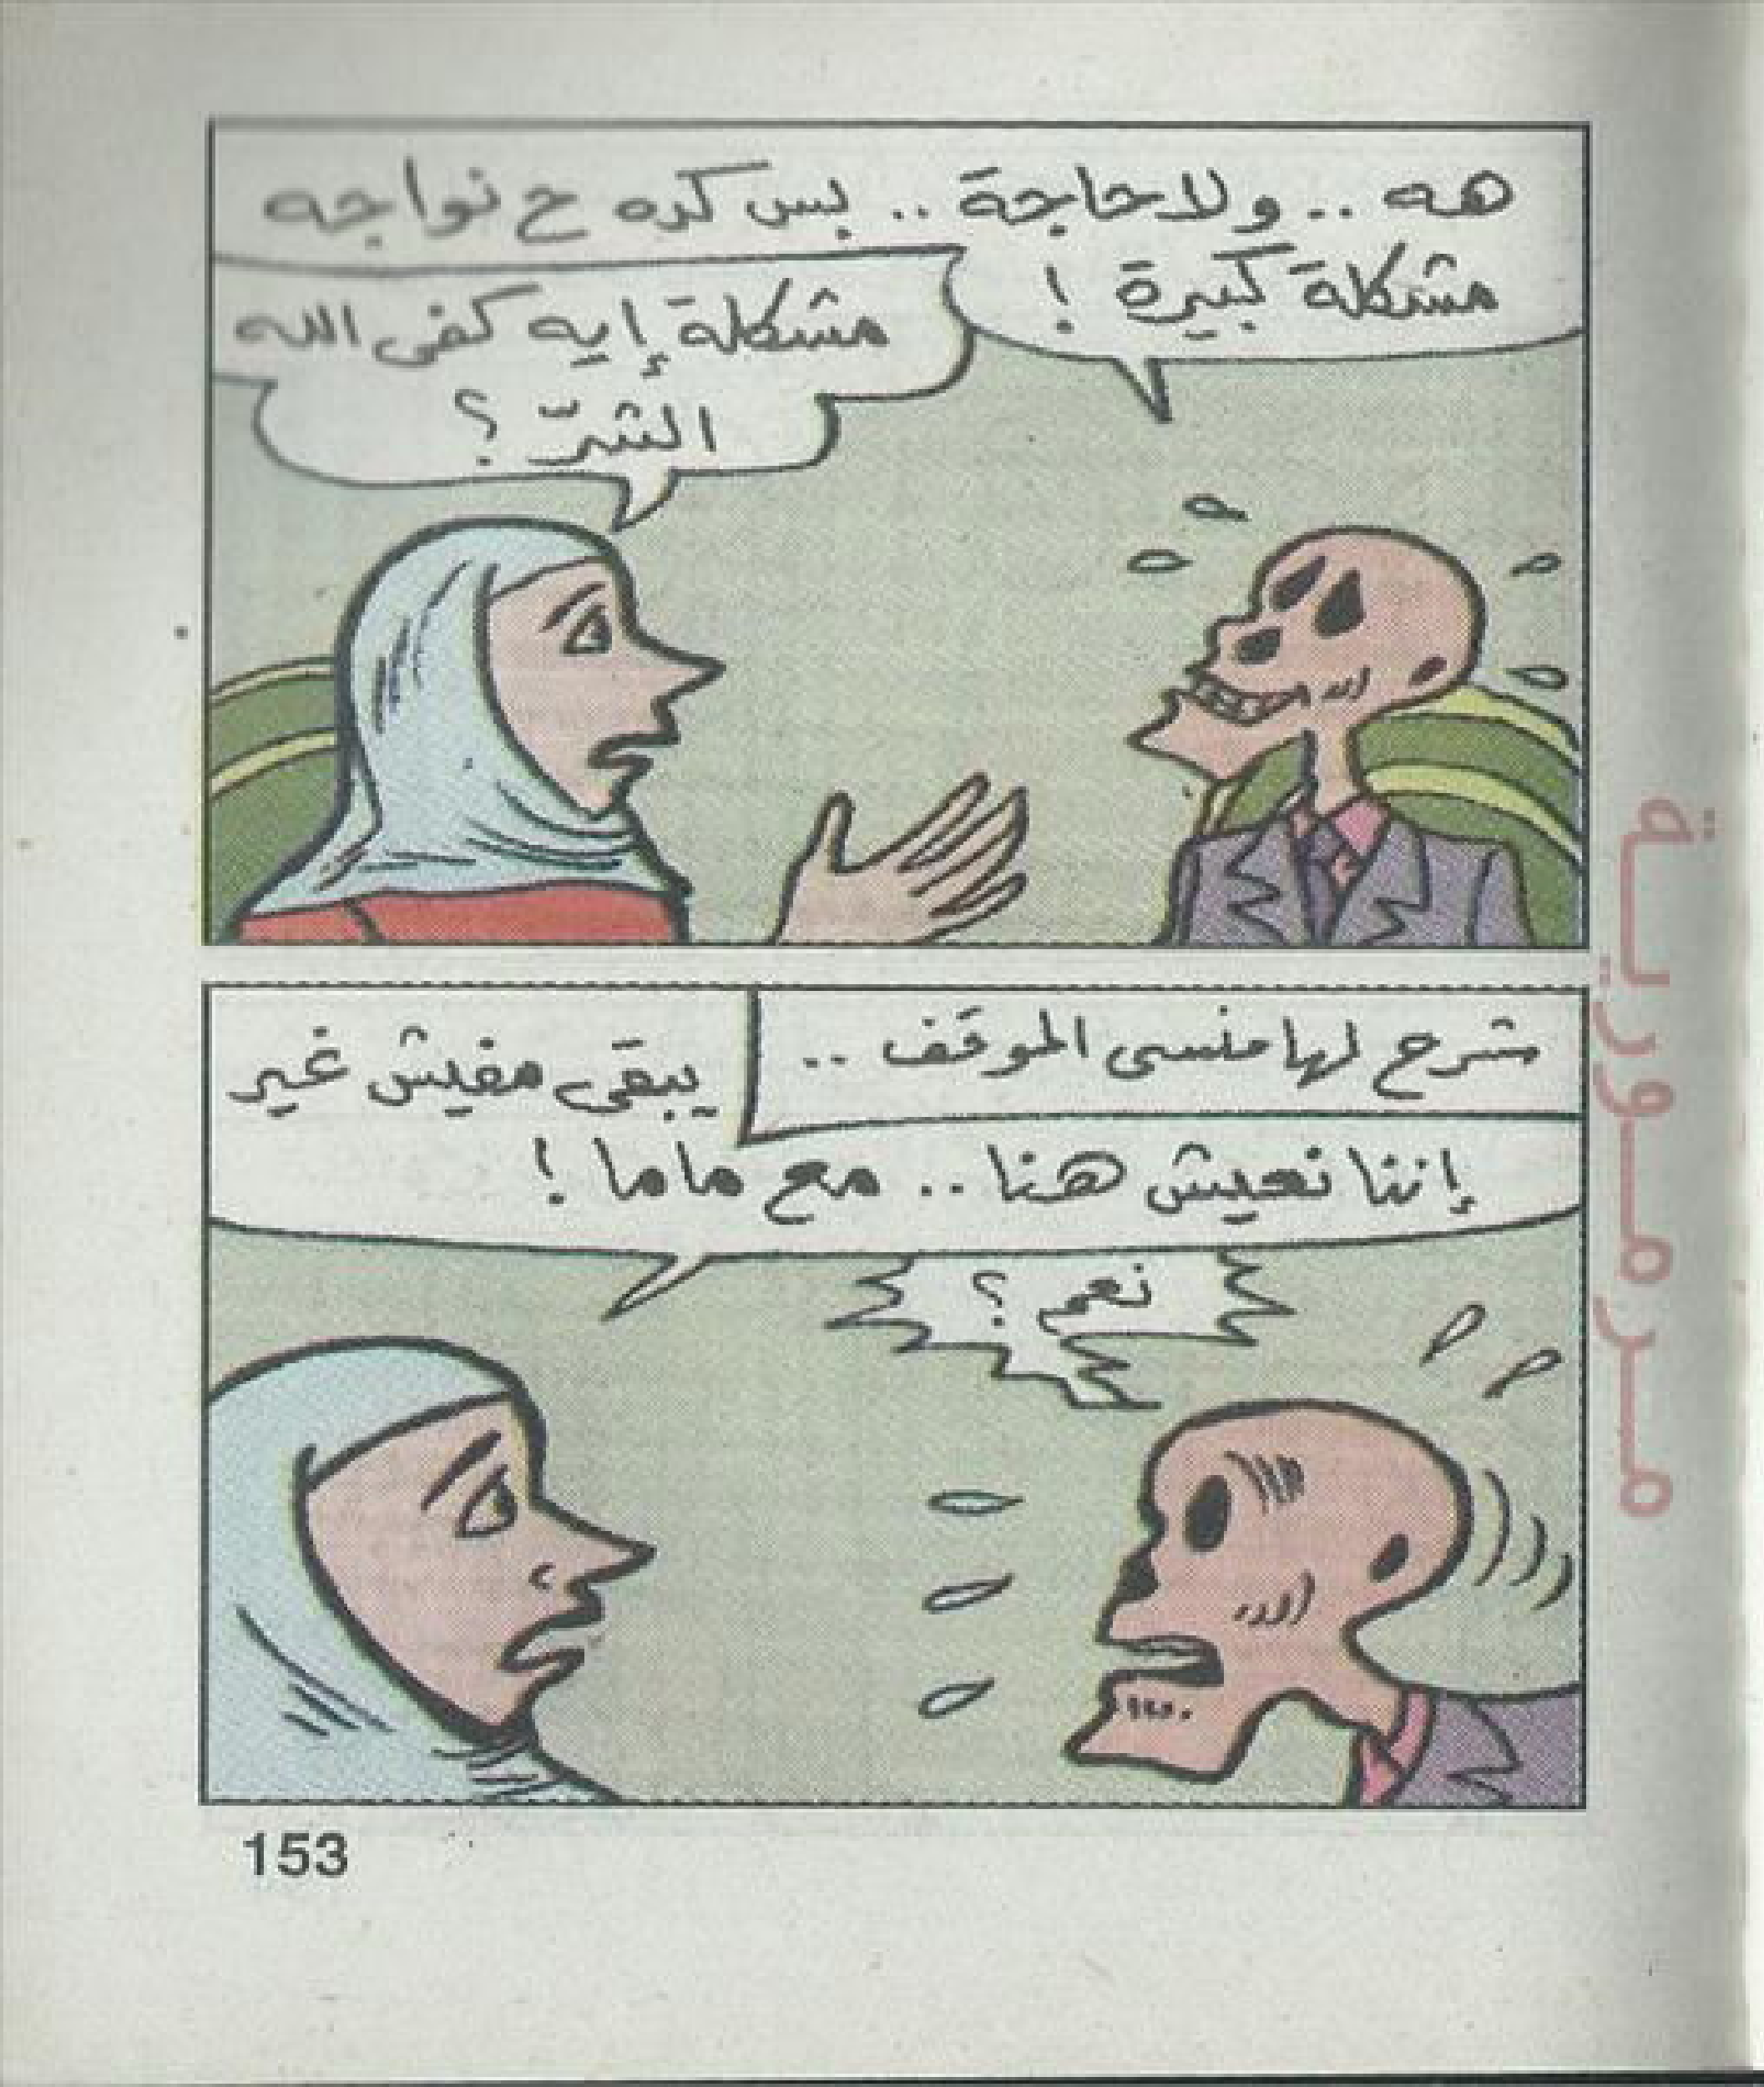 هه .. ولا حاجة .. بس كده ح نواجه
مشكلة كبيرة !
مشكلة إيه كفى الله
الشرّ ؟
شرح لها منسى الموقف ..
يبقى مفيش غير
إننا نعيش هنا .. مع ماما !
نعم ؟
153
مرمورية